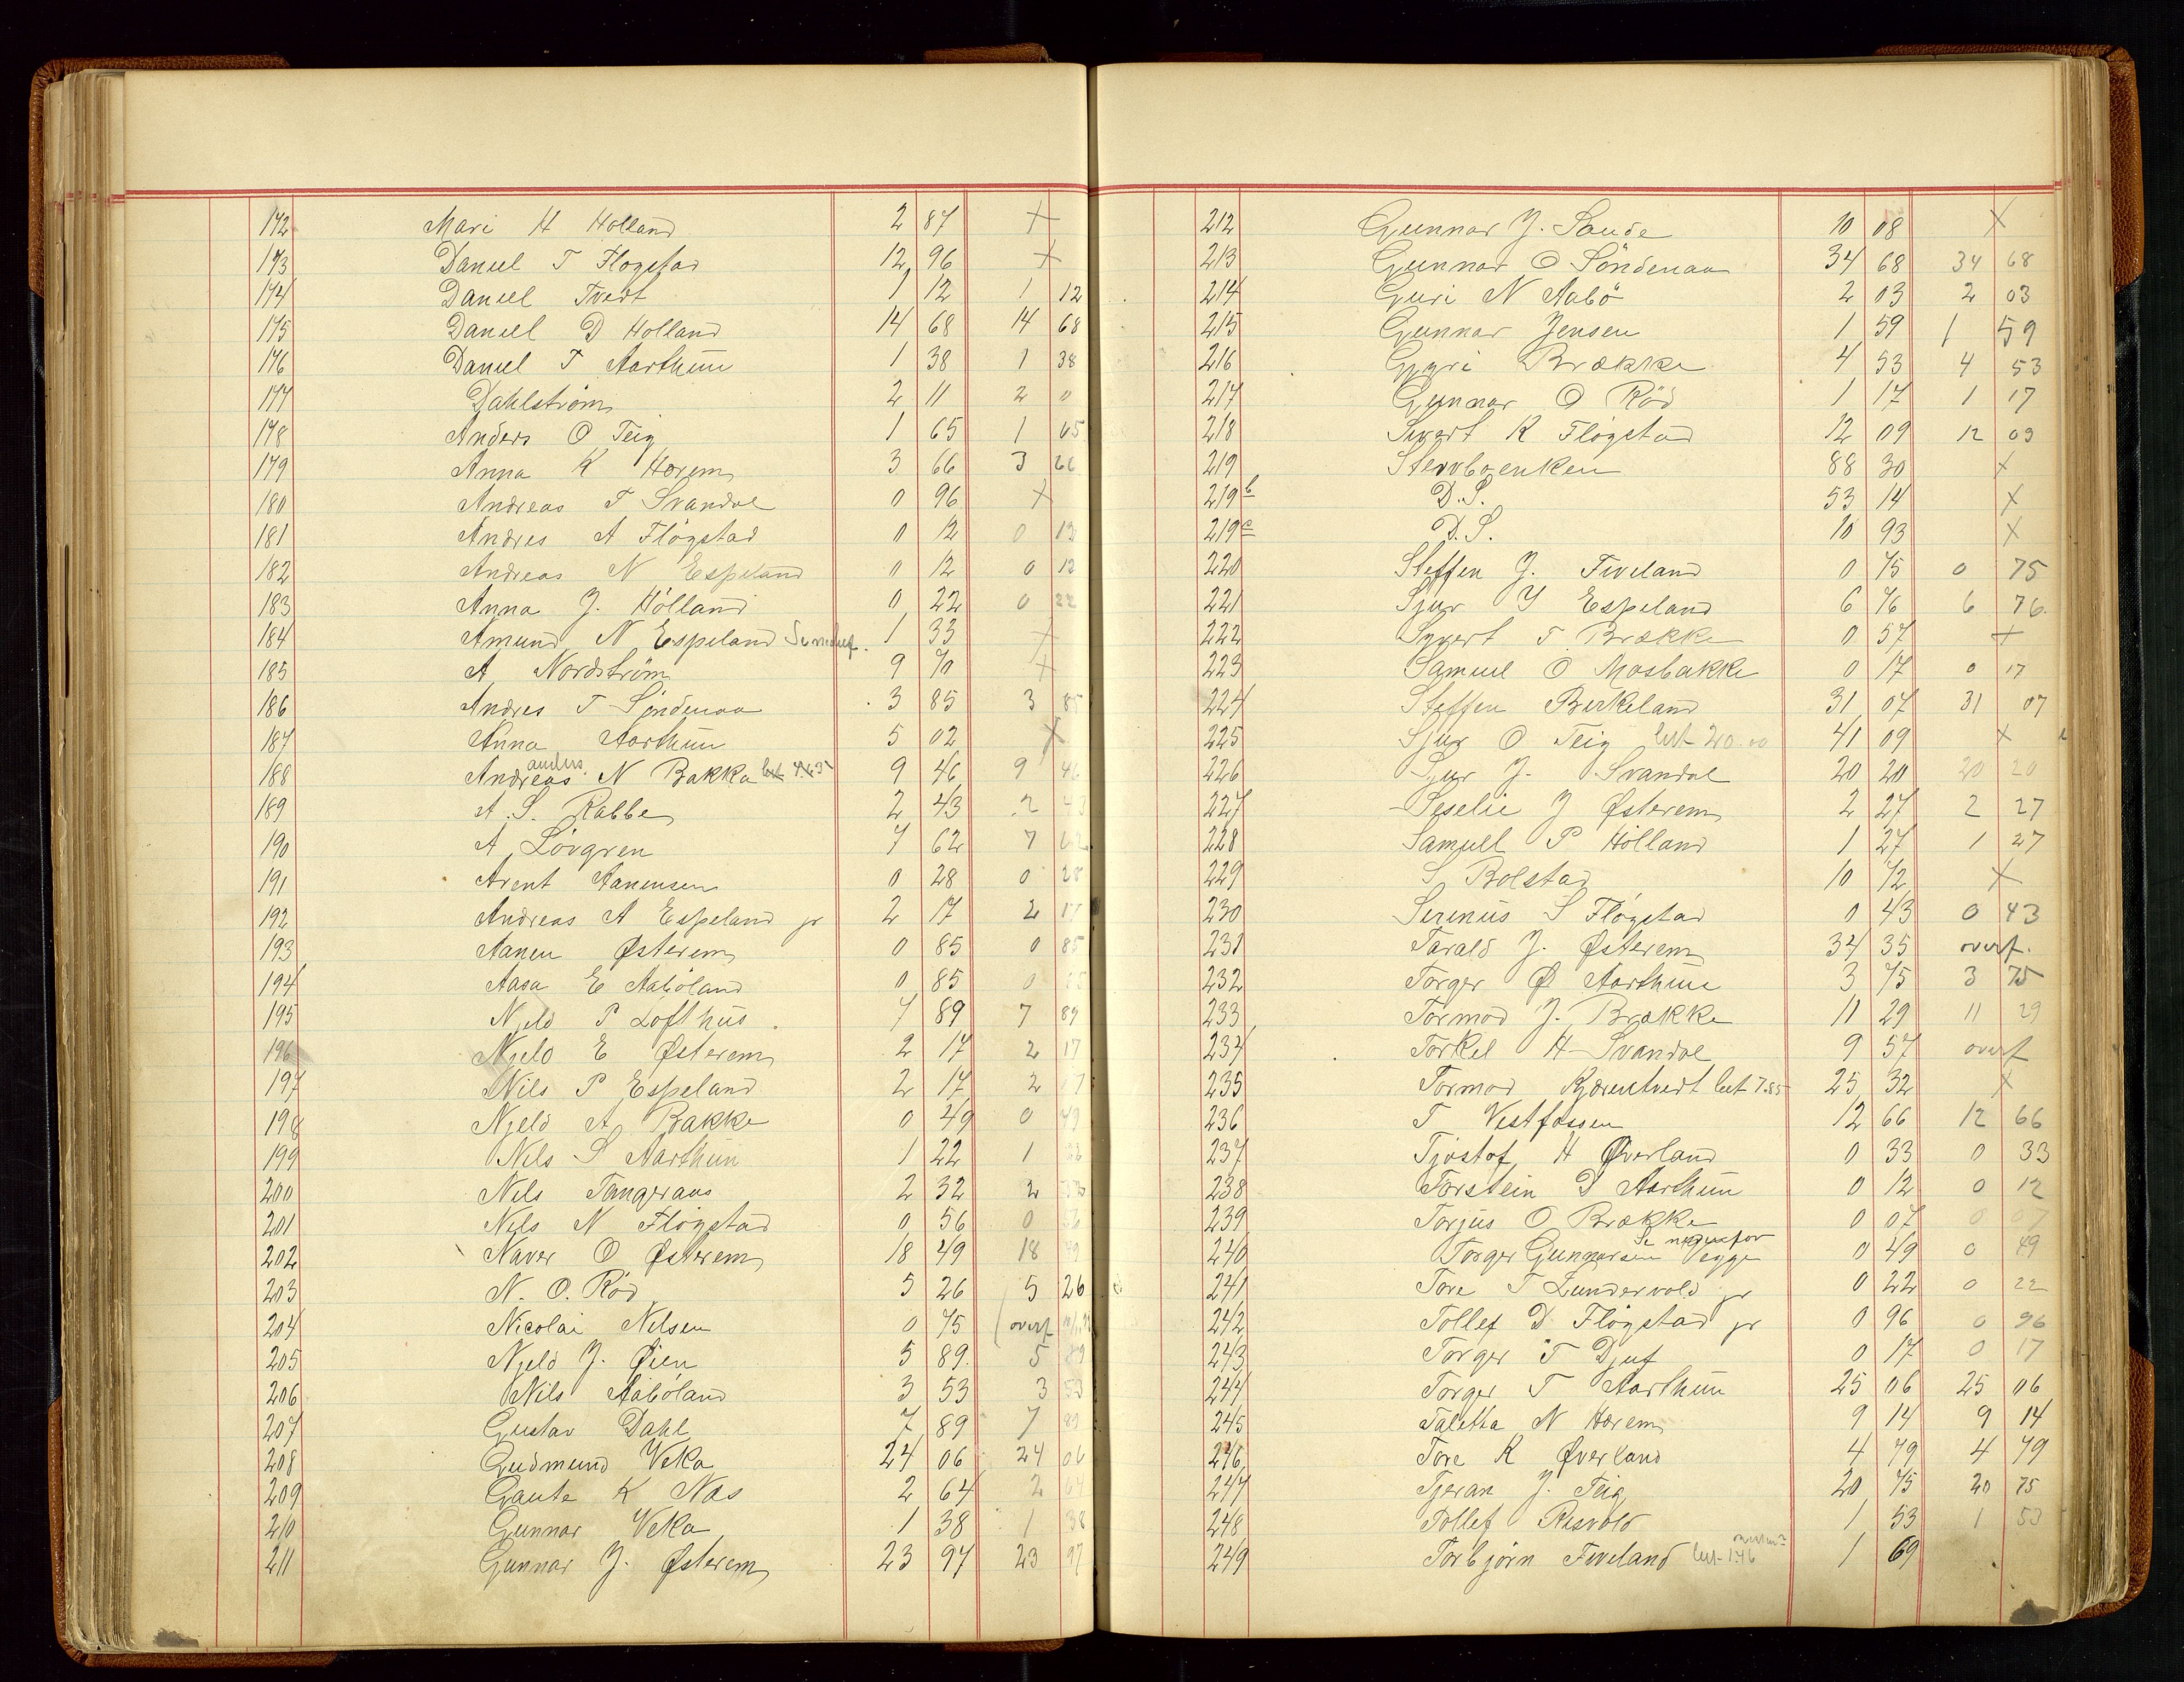 172 Mari H Holland 2 87 X
173 Daniel T Flogstad 12 96 X
174 Daniel Tvedt 1 12 1 12
175 Daniel D Holland 14 68 14 68
176 Daniel T Aarthun 1 38 1 38
177 Dahlström 2 11 2 0
178 Anders O Teig 1 65 1 65
179 Anna K Horem 3 66 3 66
180 Andreas T Svandal 0 96 X
181 Andres A Flögstad 0 12 0 12
182 Andreas N Espeland 0 12 0 12
183 Anna J. Hölland 0 22 0 22
184 Amund N Espeland 1 33 X
185 A Nordström 9 70 X
186 Andres T Söndenaa 3 85 3 85
187 Anna Aarthun 5 02 X
188 Andreas anders. N Bakka 9 46 9 46
189 A. S. Rabbe 2 43 2 43
190 A Lövgren 7 62 7 62
191 Arent Aanensen 0 28 0 28
192 Andreas A Espeland jr 2 17 2 17
193 Aanen Østerem 0 85 0 85
194 Aasa E Aaböland 0 85 0 85
195 Njeld P Lofthus 7 89 7 89
196 Njeld E Østerem 2 17 2 17
197 Nils P Espeland 2 17 2 17
198 Njeld A Bakke 0 49 0 49
199 Nils S Aarthun 1 22 1 22
200 Nils Tangeraas 2 32 2 32
201 Nils N Flögstad 0 56 0 56
202 Naver O Østerem 18 49 18 49
203 N. O. Röd 5 26 5 26
204 Nicolai Nilsen 0 75 overf
205 Njeld J. Øien 5 89 5 89
206 Nils Aaböland 3 53 3 53
207 Gustav Dahl 7 89 7 89
208 Gudmund Veka 24 06 24 06
209 Gaute K Næs 2 64 2 64
210 Gunnar Veka 1 38 1 38
211 Gunnar J. Østerem 23 97 23 97
212 Gunnar J. Sande 10 08 X
213 Gunnar O Söndenaa 34 68 34 68
214 Guri N Aabö 2 03 2 03
215 Gunnar Jensen 1 59 1 59
216 Gyri Brække 4 53 4 53
217 Gunnar O Röd 1 17 1 17
218 Sivert K Flögstad 12 09 12 09
219 Stervboenken 88 30 X
219 b D.S. 53 14 X
219 c D.S. 10 93 X
220 Steffen J. Fiveland 0 75 0 75
221 Sjur J Espeland 6 76 6 76
222 Syvert T. Brække 0 57 X
223 Samuel O Mosbakke 0 17 0 17
224 Steffen Birkeland 31 07 31 07
225 Sjur O Teig lut 20.00 41 09 X
226 Sjur J. Svandal 20 20 20 20
227 Seselie J Østerem 2 27 2 27
228 Samuel P Hölland 1 27 1 27
229 S Bolstad 10 72 X
230 Serenius S Flögstad 0 43 0 43
231 Tarald J. Østerem 34 35 overf.
232 Torger Ø Aarthun 3 75 3 75
233 Tormod J. Brække 11 29 11 29
234 Torkel H Svandal 9 57 overf
235 Tormod Kjærentvedt lut 7.85 25 32 X
236 T Vestfossen 12 66 12 66
237 Tjostof H Øverland 0 33 0 33
238 Torstein D Aarthun 0 12 0 12
239 Torjus O Brække 0 07 0 07
Se nedenfor
240 Torger Gunnarsen egge 0 49 0 49
241 Tore T Lundervold jr 0 22 0 22
242 Tollef D Flögstad jr 0 96 0 96
243 Torger T Djuf 0 17 0 17
244 Torger T Aarthun 25 06 25 06
245 Taletha N Horem 9 14 9 14
246 Tore K Øverland 4 79 4 79
247 Tjeran J. Teig 20 75 20 75
248 Tollef Risvold 1 53 1 53
249 Torbjörn Fiveland lut 1.46 1 69